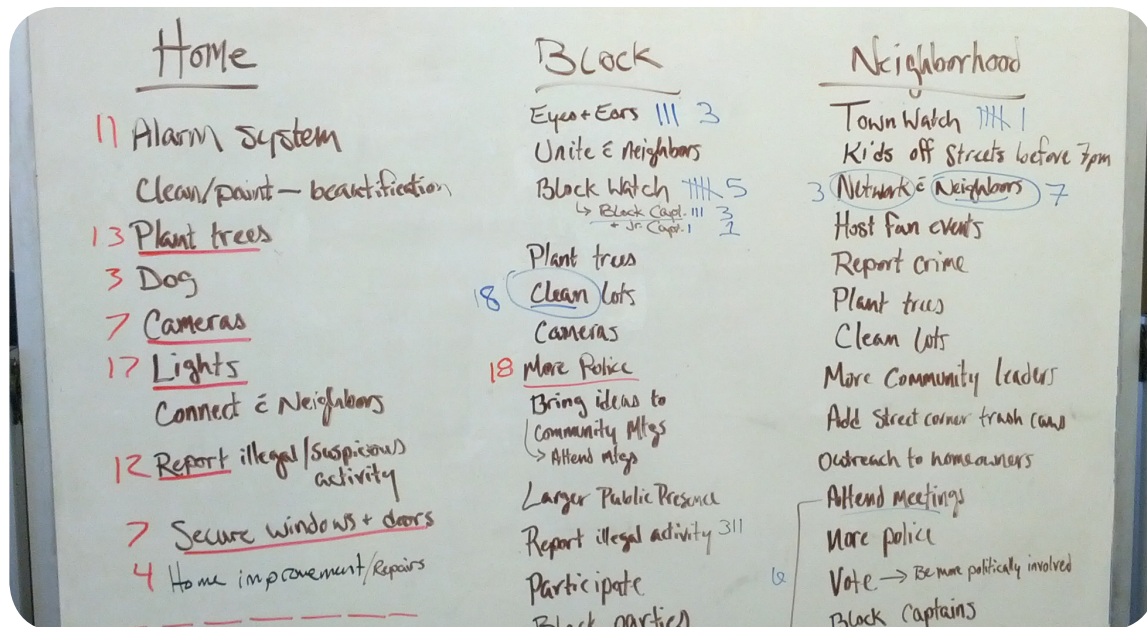 Home
11 Alarm system
Clean/paint - beautification
13 Plant trees
3 Dog
7 Cameras
17 Lights
Connect c̄ Neighbors
12 Report illegal/suspicious
activity
7 Secure windows + doors
4 Home improvement/Repairs
Block
Eyes + Ears ||| 3
Unite c̄ neighbors
Block Watch 5
↳ Block Capt. ||| 3
+ Jr. Capt. | 1
Plant trees
18 Clean lots
Cameras
18 More Police
Bring ideas to
Community Mtgs
→ Attend mtgs
Larger Public Presence
Report illegal activity 311
Participate
Block parties
Neighborhood
Town Watch
Kids off streets before 7pm
3 Network c̄ Neighbors 7
Host fun events
Report crime
Plant trees
Clean lots
More Community leaders
Add street corner trash cans
Outreach to homeowners
Attend meetings
More police
6 Vote → Be more politically involved
Block Captains